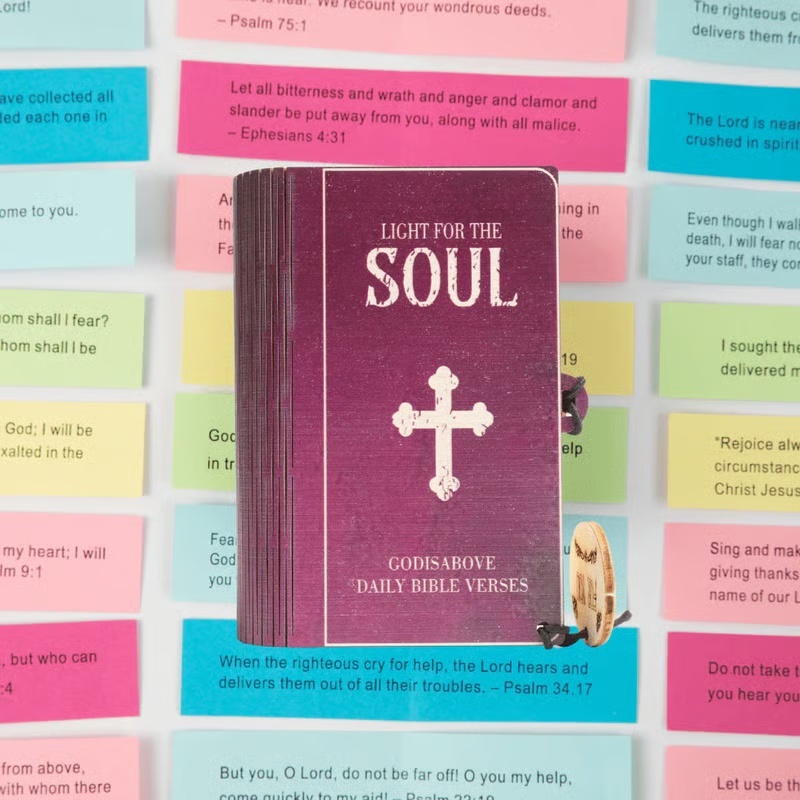 Lord!
We recount your wondrous deeds.
– Psalm 75:1
The righteous
delivers them
ave collected all
ded each one in
Let all bitterness and wrath and anger and clamor and
slander be put away from you, along with all malice.
– Ephesians 4:31
The Lord is near
crushed in spirit
ome to you.
ing in
the
Even though I walk
death, I will fear no
your staff, they
LIGHT FOR THE
SOUL
om shall I fear?
hom shall I be
19
I sought the
delivered
God; I will be
xalted in the
God
in
elp
"Rejoice
circumstance
Christ Jesus
my heart; I will
lm 9:1
Fear
God
you
Sing and
giving thanks
name of our
GODISABOVE
DAILY BIBLE VERSES
, but who can
:4
When the righteous cry for help, the Lord hears and
delivers them out of all their troubles. – Psalm 34.17
Do not take
you hear you
from above,
with whom there
But you, O Lord, do not be far off! O you my help,
come quickly to my aid! – Psalm 22:19
Let us be